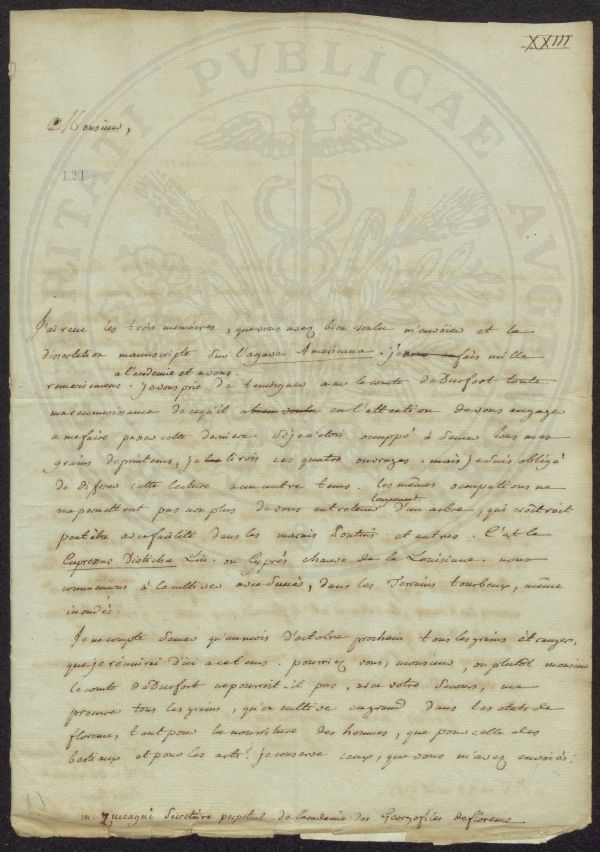 XXIII
RITATI PVBLICAE AVGE
Monsieur,
121
J'ai recu les trois memoires, que vous avez bien voulu m'envoïer et la
dissertation manuscripte sur l'agave Americana. je fais mille
a l'academie et a vous
remerciemens. je vous prie de temoigner a m. le comte de Durfort toute
ma reconnoissance de ce qu'il a eu l'attention de vous engager
a me faire passer cette derniere. Si je n'etois occuppé à semer tous mes
grains de printems, je lirois ces quatre ouvrages. mais je suis obligé
de differer cette lecture a un autre tems. les mêmes occupations ne
me permettent pas non plus de vous entretenir longuement d'un arbre, qui croîtroit
peut être avec facilité dans les marais Pontins et autres. C'est le
Cupressus Disticha Lin. ou Cyprés chauve de la Louisiane. nous
commençons à le cultiver avec succès, dans les terrains tourbeux, même
inondés.
Je ne compte semer qu'au mois d'octobre prochain tous les grains etrangers,
que je réunirai d'ici a ce tems. pourriez vous, monsieur, ou plutôt monsieur
le comte de Durfort ne pourroit-il pas, avec votre secours, me
procurer tous les grains, qu'on cultive en grand dans les etats de
florence, tant pour la nourriture des hommes, que pour celle des
bestiaux et pour les arts? je conserve ceux, que vous m'avez envoiés.
m. Zuccagni Secretaire perpetuel de l'academie des Georgofiles de florence